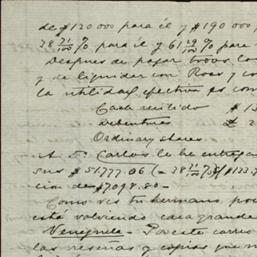 de $120000 para él y $190000
38 71/100 % para él y 61 29/100 % para
Despues de pagar todos los
y se liquidar con Ross y con
la utilidad efectiva es com
Cash recibido $ 15
Debentures £ 2
Ordinary shares
A T. Carlos le he entreg
sus $51777.06 (= 38 71/100 %) $133.7
cion de $7098.80-
Como ves tu hermano, pos
está volviendo casa grande
Venezuela - Por este correo
las reseñas y copias que m